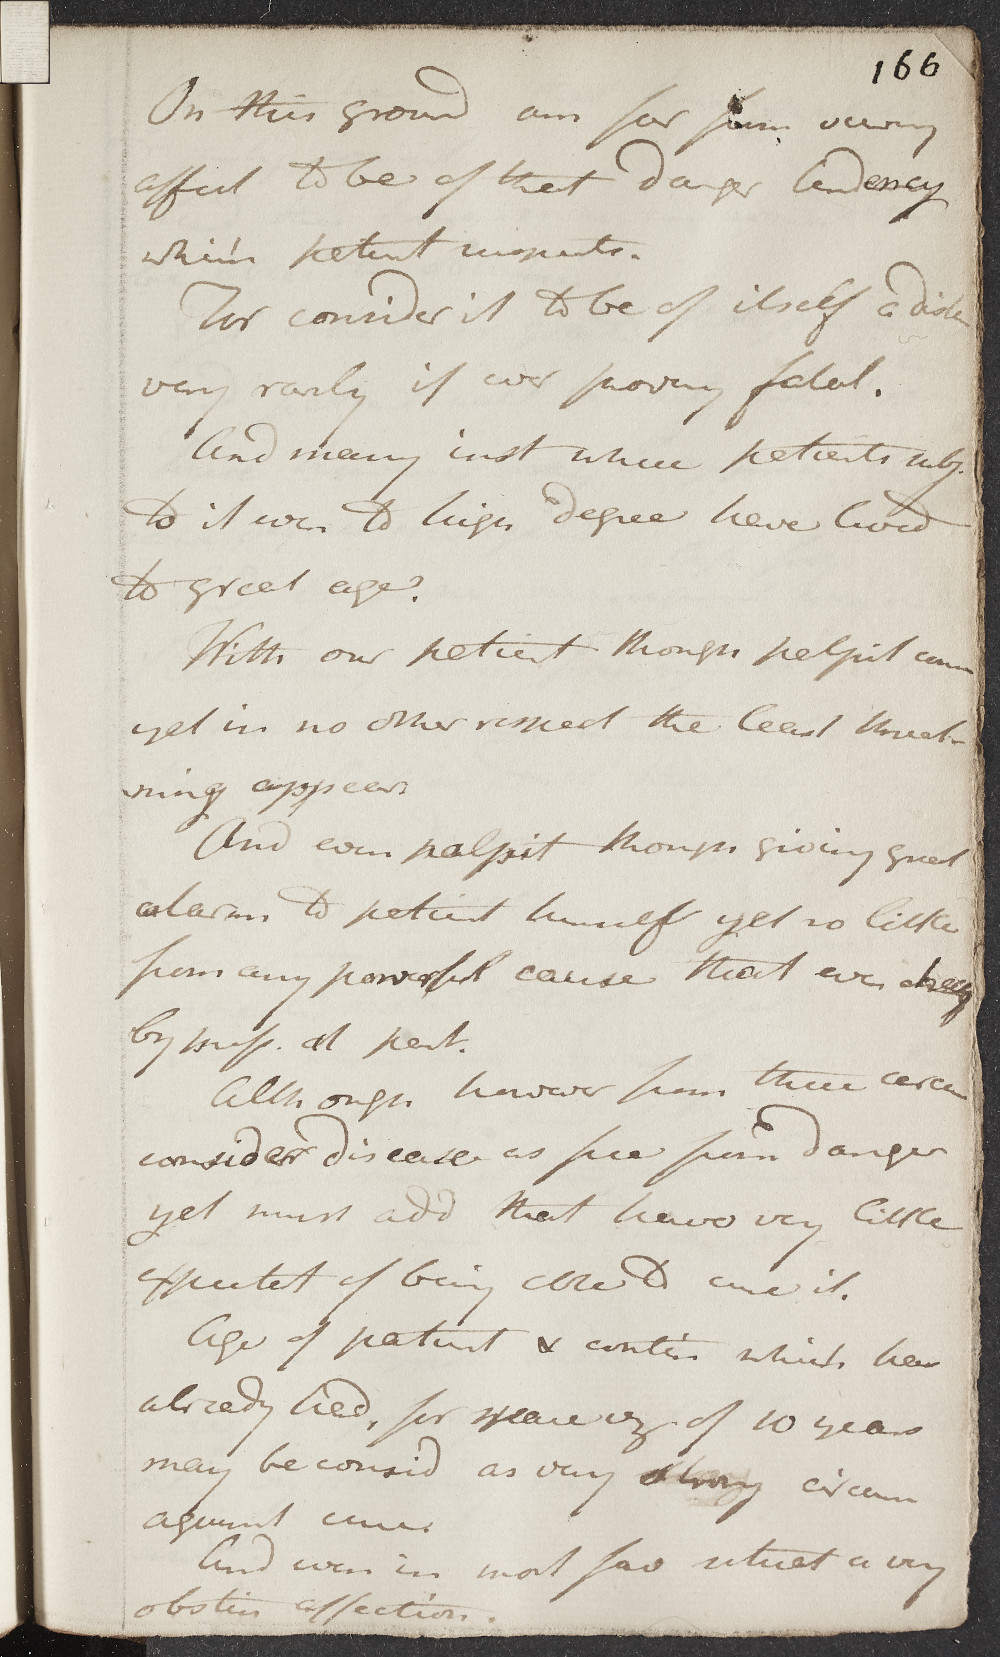 166
On this ground am far from viewing
affect to be of that danger tendency
which patient suspects.
For consider it to be of itself a dise
very rarely if ever proving fatal.
And many inst where patients subj.
to it even to high degree have lived
to great age.
With our patient though palpit comm
yet in no other respect the least threat-
ning appear
And even palpit though giving great
alarm to patient himself yet so little
from any powerful cause that even
by press. at part.
Although however from these circu
consider disease as free from danger
yet must add that have very little
expectat of being able to cure it.
Age of patient & contin which has
already had, for space of 10 years
may be consid as very strong circum
against cure.
And even in most fav situat a very
obstin affection.